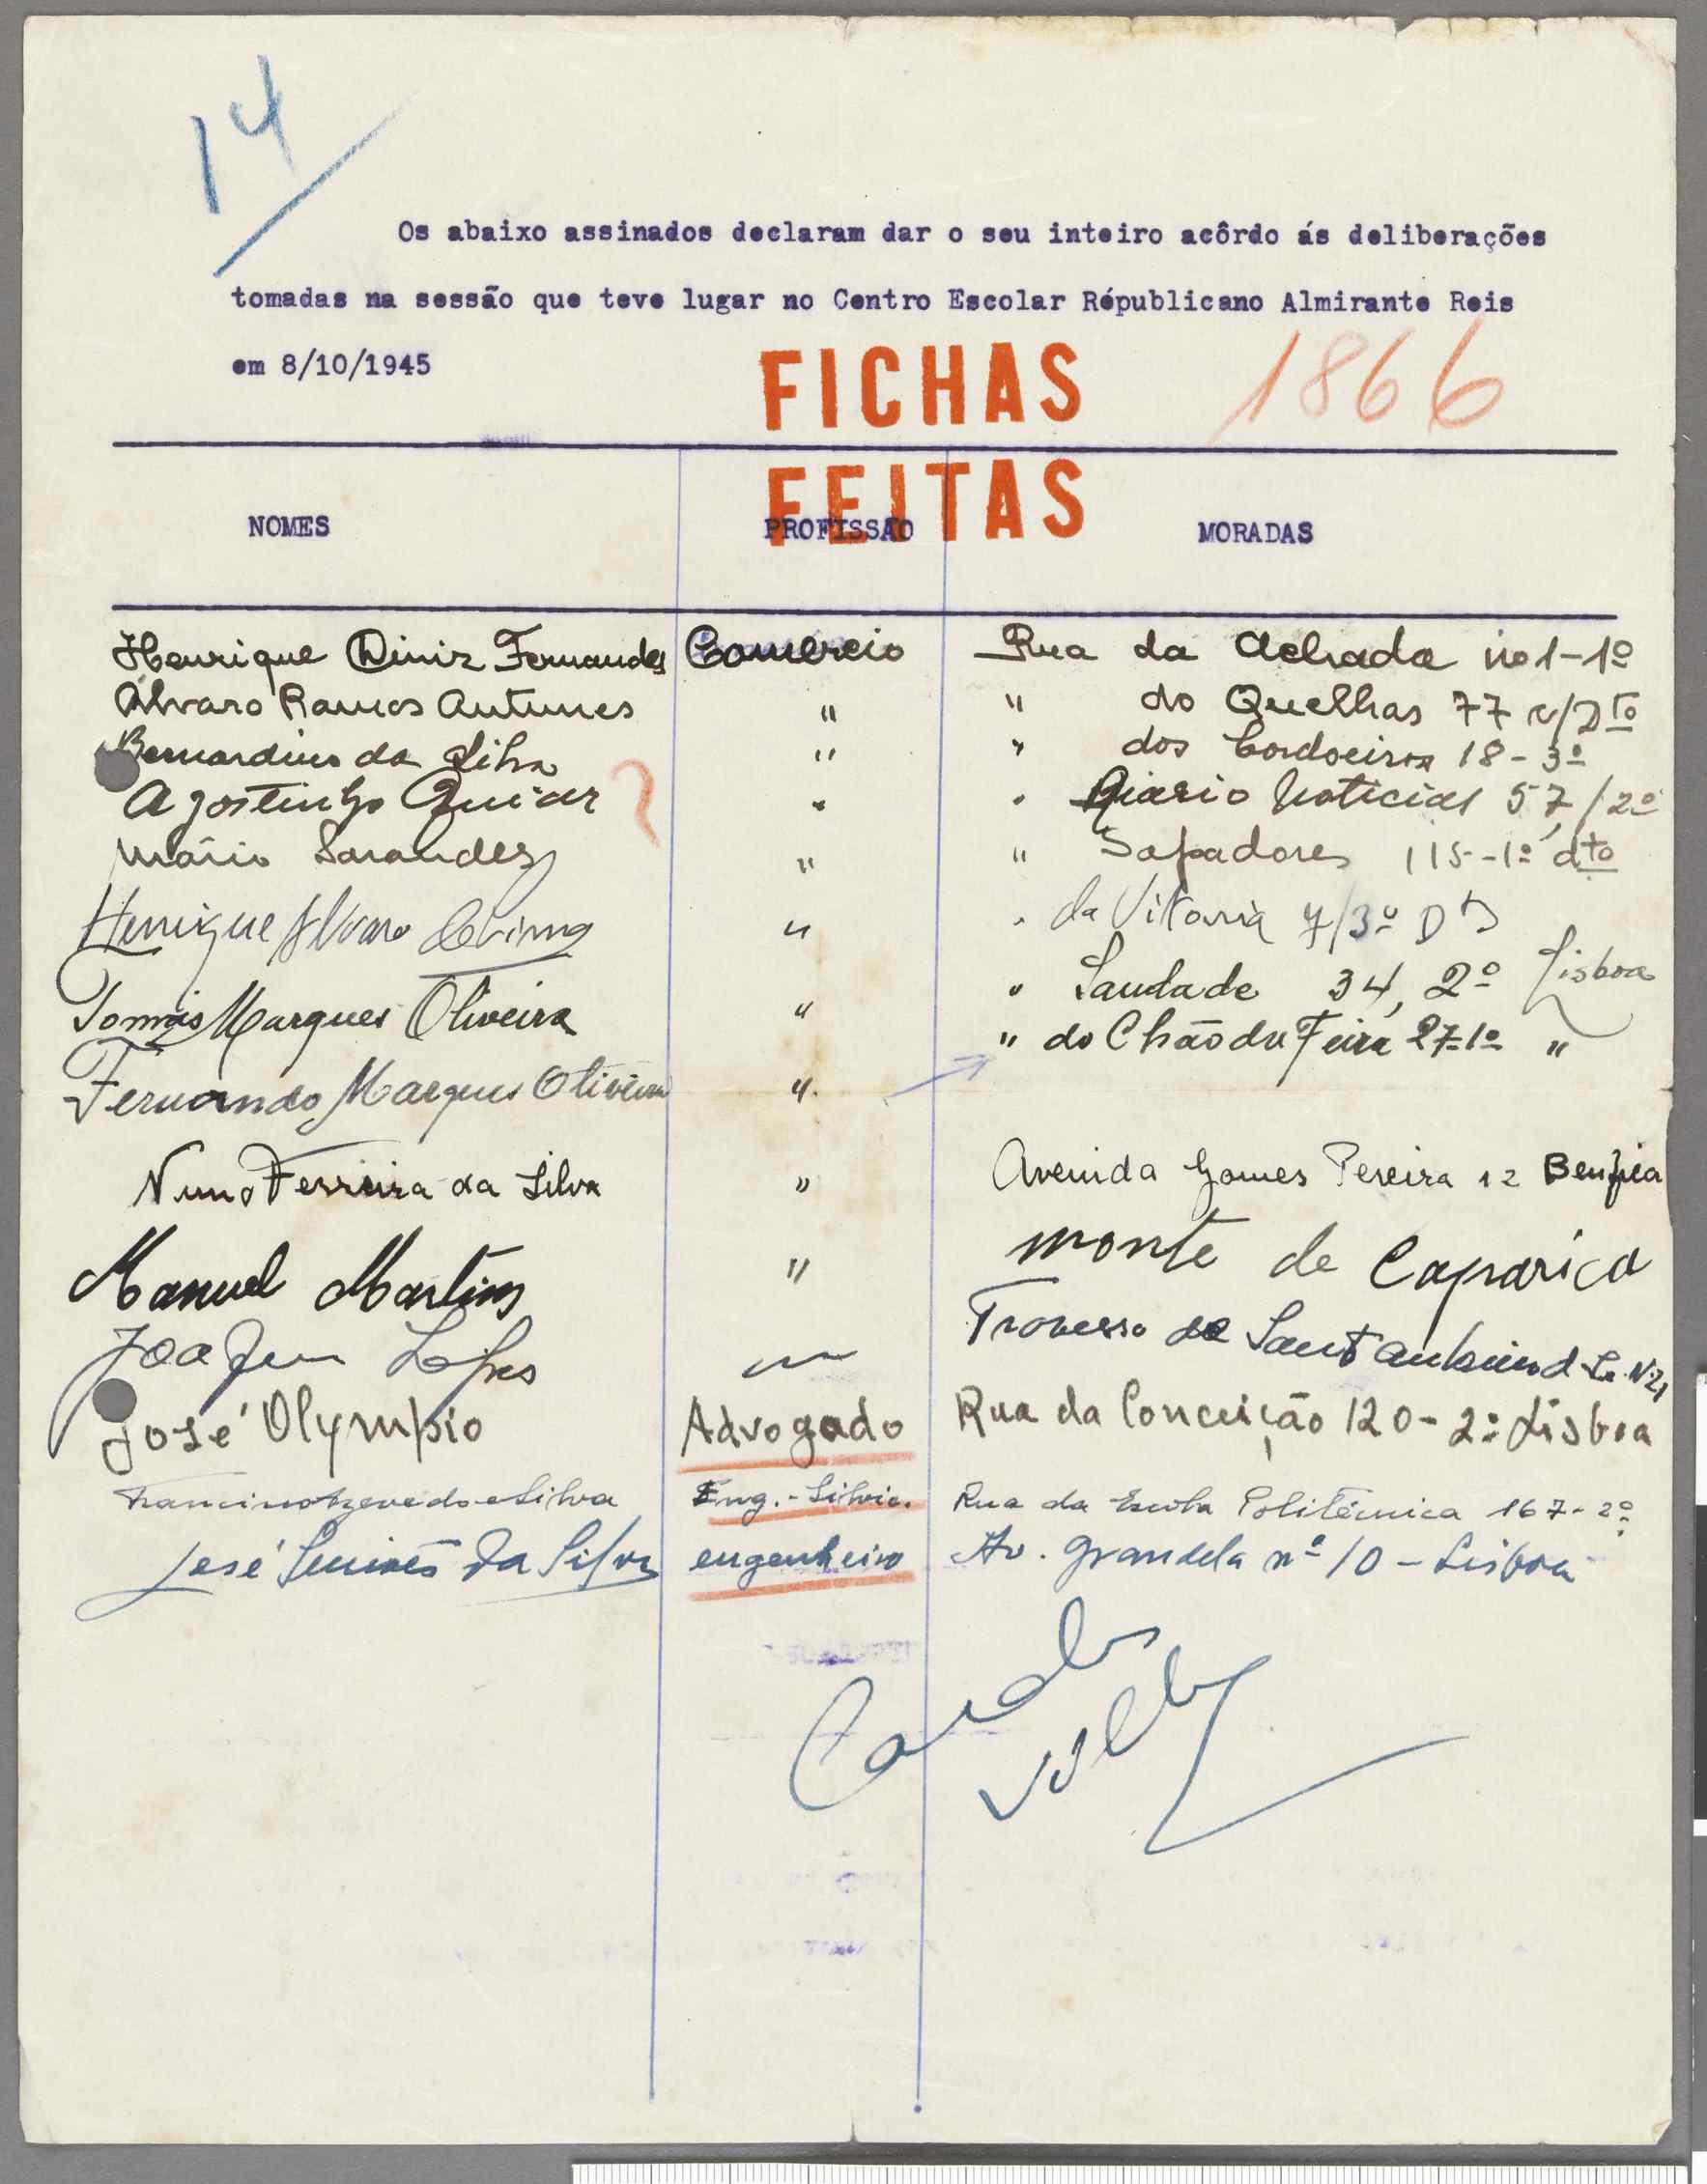 14
Os abaixo assinados declaram dar o seu inteiro acôrdo ás deliberações
tomadas na sessão que teve lugar no Centro Escolar Républicano Almirante Reis
em 8/10/1945
FICHAS
1866
FEITAS
NOMES PROFISSAO MORADAS
Henrique Diniz Fernandes Comercio Rua da Achada nº 1-1º
Alvaro Ramos Antunes " " do Quelhas 77 r/Dto
Bernardino da Silva " " dos Cordoeiros 18-3º
Agostinho ? " " Diario Noticias 57/2º
Mário " " Sapadores 115-1º dto
Henrique Alvaro " " da Vitoria 7/3º Dto
Tomás Marques Oliveira " " Saudade 34, 2º Lisboa
Fernando Marques Oliveira " " do Chão da Feira 27-1º "
Nuno Ferreira da Silva " Avenida Gomes Pereira 12 Benfica
Manuel Martins " Monte de Caparica
Joaquim Lopes " Travessa de Santo
José Olympio Advogado Rua da Conceição 120-2º Lisboa
Francisco Azevedo e Silva Eng.-Silvic. Rua da Escola Politécnica 167-2º
José Simões da Silva engenheiro Av. Grandela nº 10-Lisboa